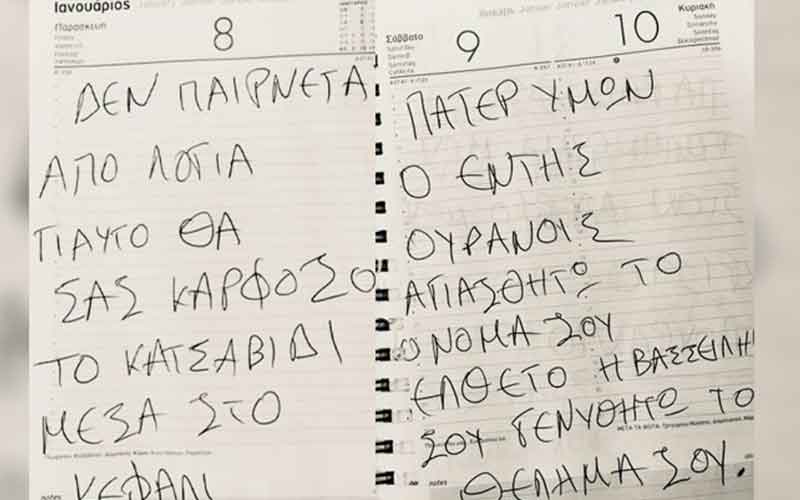 Ιανουάριος
Παρασκευή
8
ΔΕΝ ΠΑΙΡΝΕΤΑ
ΑΠΟ ΛΟΓΙΑ
ΓΙΑΥΤΟ ΘΑ
ΣΑΣ ΚΑΡΦΟΣΟ
ΤΟ ΚΑΤΣΑΒΙΔΙ
ΜΕΣΑ ΣΤΟ
ΚΕΦΑΛΙ
Σάββατο
9
10
Κυριακή
ΠΑΤΕΡ ΥΜΩΝ
Ο ΕΝΤΗΣ
ΟΥΡΑΝΟΙΣ
ΑΓΙΑΣΘΗΤΩ ΤΟ
ΟΝΟΜΑ ΣΟΥ
ΕΛΘΕΤΟ Η ΒΑΣΣΕΙΛΗ
ΣΟΥ ΓΕΝΥΘΗΤΩ ΤΟ
ΘΕΛΗΜΑ ΣΟΥ.